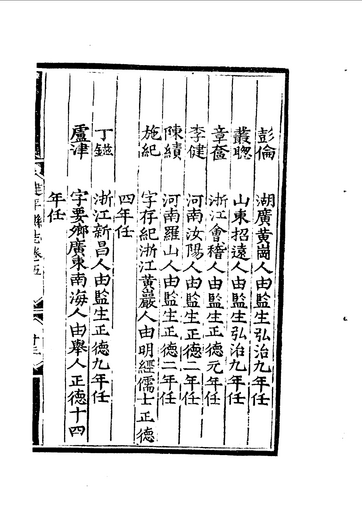 彭倫　湖廣黃崗人由監生弘治九年任
叢聰　山東招遠人由監生弘治九年任
章㚖　浙江會稽人由監生正德元年任
李健　河南汝陽人由監生正德二年任
陳績　河南羅山人由監生正德二年任
施紀　字存紀浙江黃巖人由明經儒士正德
四年任
丁鎡　浙江新昌人由監生正德九年任
盧津　字要鄉廣東南海人由舉人正德十四
年任
平縣志卷五
十三